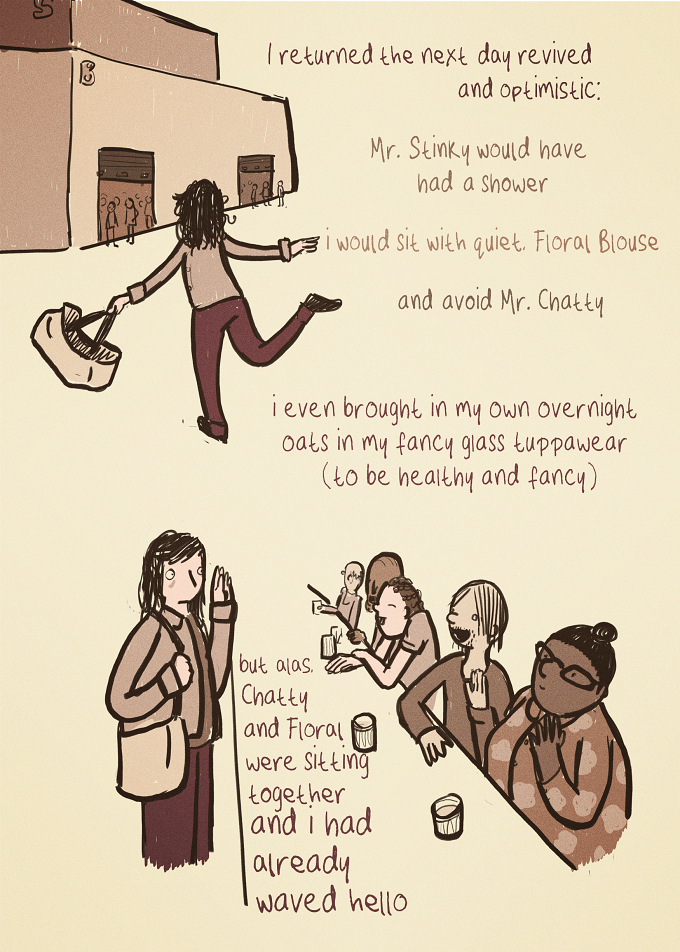 S
B
I returned the next day revived
and optimistic:
Mr. Stinky would have
had a shower
i would sit with quiet, Floral Blouse
and avoid Mr. Chatty
i even brought in my own overnight
oats in my fancy glass tuppawear
(to be healthy and fancy)
but alas,
Chatty
and Floral
were sitting
together
and i had
already
waved hello